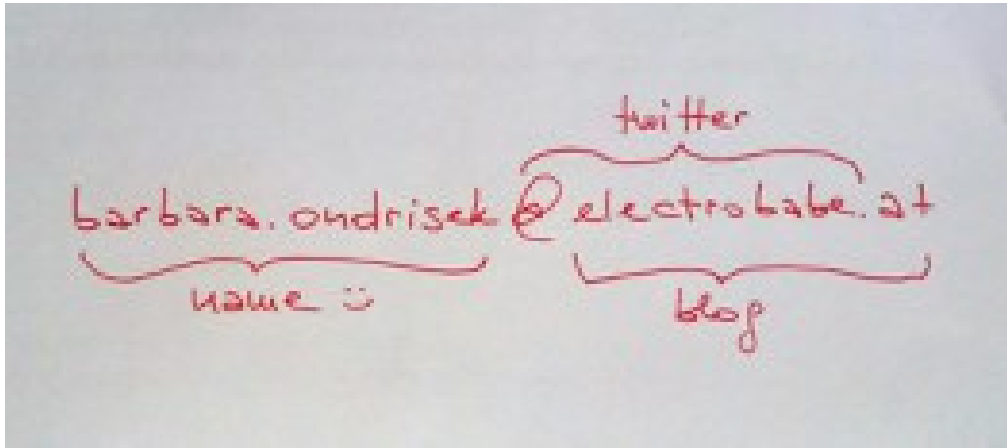 twitter
barbara.ondrisek@electrobabe.at
name :)
blog